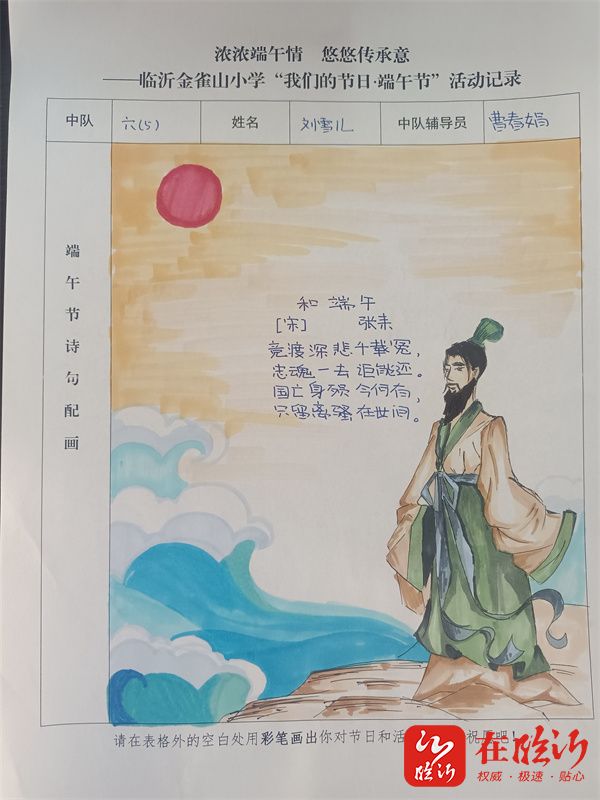 浓浓端午情 悠悠传承意
——临沂金雀山小学“我们的节日·端午节”活动记录
中队 六(5) 姓名 刘雪儿 中队辅导员 曹春娟
端午节诗句配画
和端午
[宋] 张耒
竞渡深悲千载冤,
忠魂一去讵能还。
国亡身殒今何有,
只留离骚在世间。
请在表格外的空白处用彩笔画出你对节日和活 祝愿吧!
在临沂
临沂
权威·极速·贴心